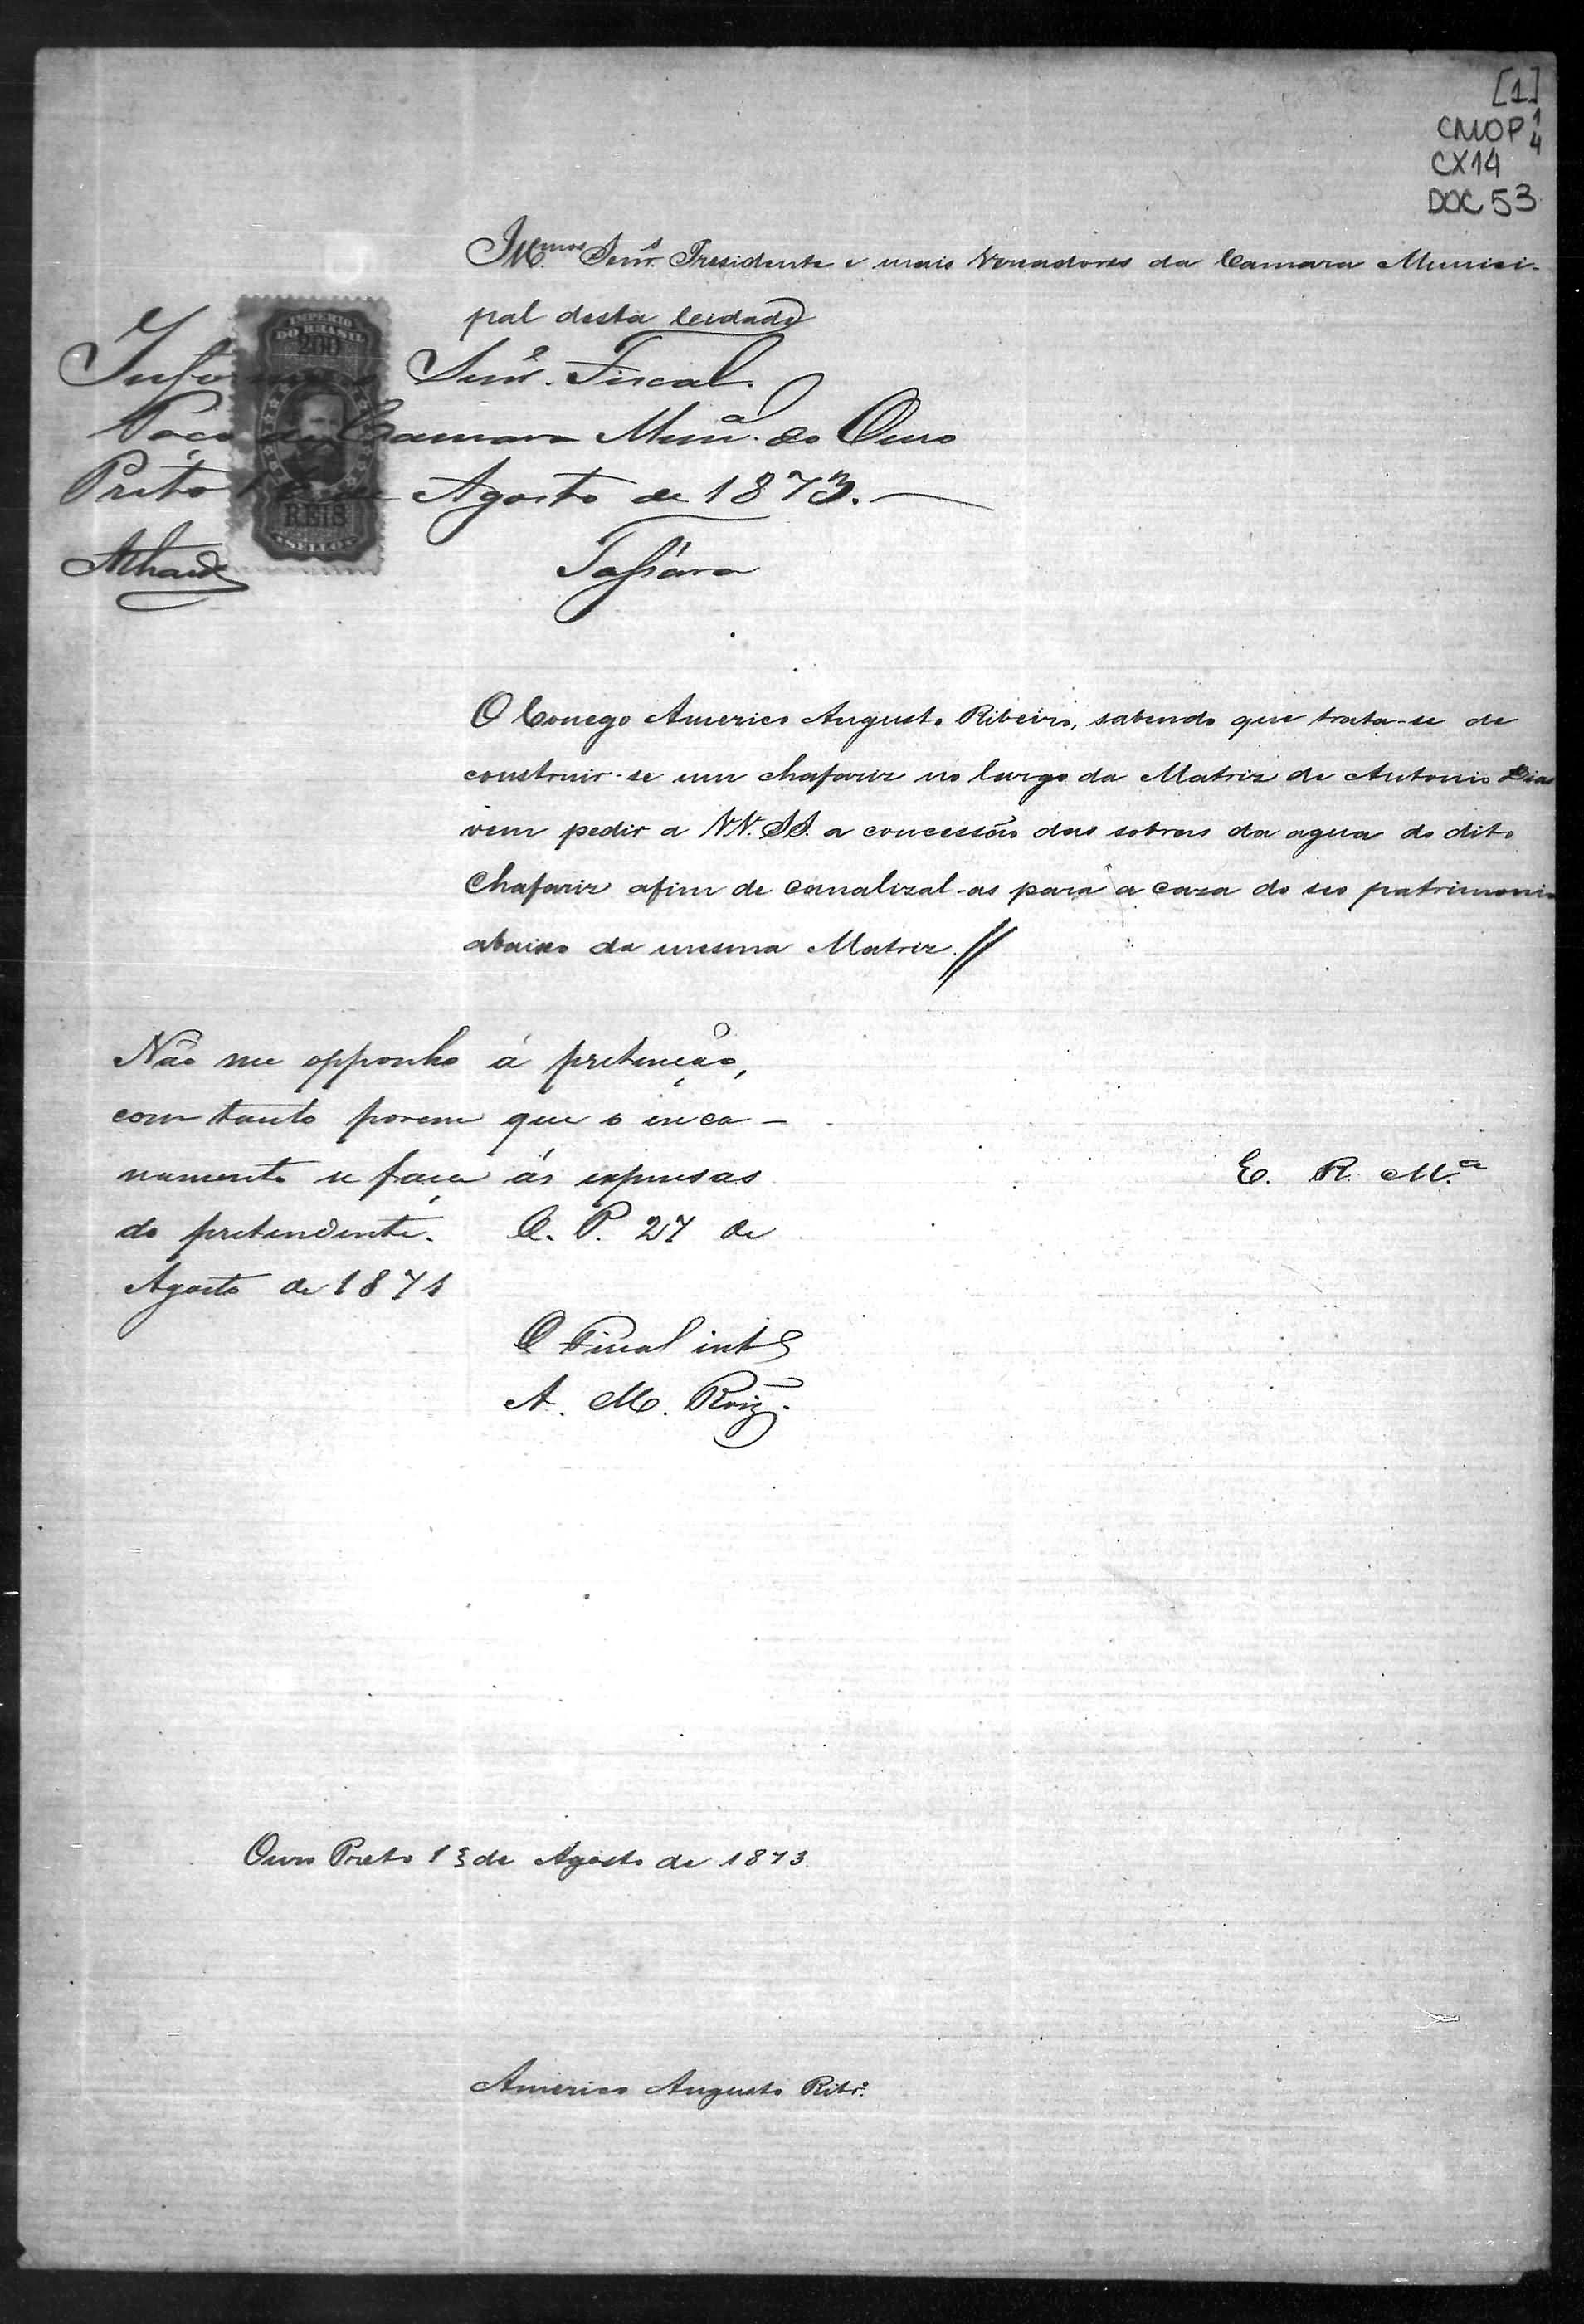 [1]
CMOP 1
4
CX14
DOC 53
Ill.mos Senr.s Presidente e mais Vereadores da Camara Munici-
pal desta Cidade
IMPERIO
DO BRASIL
200
REIS
SELLO
Informe o Senr. Fiscal.
Paço da Camara Mun.a do Ouro
Preto de Agosto de 1873.
Tassara
O Conego Americo Augusto Ribeiro, sabendo que trata-se de
construir-se um chafariz no largo da Matriz de Antonio Dias
vem pedir a VV. SS. a concessão das sobras da agua do dito
Chafariz afim de canalizal-as para a caza do seo patrimonio
abaixo da mesma Matriz.//
Não me opponho á pretenção,
com tanto porem que o inca-
namento se faça ás expensas
do pretendente. O. P. 27 de
Agosto de 187
E. R. M.ce
O Fiscal int.o
A. M. Roiz.
Ouro Preto 13 de Agosto de 1873
Americo Augusto Ribr.o